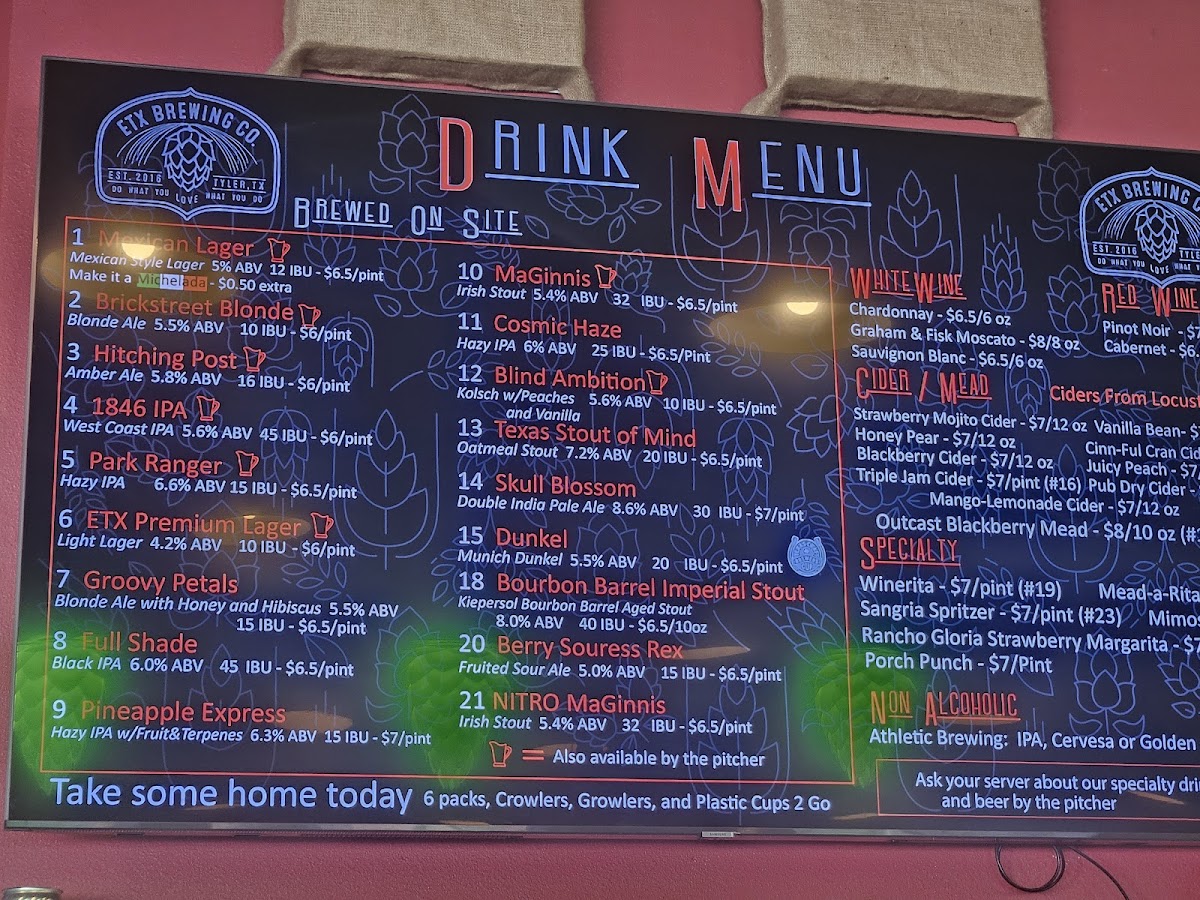 ETX BREWING CO.
EST. 2016
TYLER, TX
DO WHAT YOU LOVE WHAT YOU DO
DRINK MENU
BREWED ON SITE
1 Mexican Lager
Mexican Style Lager 5% ABV 12 IBU - $6.5/pint
Make it a Michelada - $0.50 extra
2 Brickstreet Blonde
Blonde Ale 5.5% ABV 10 IBU - $6/pint
3 Hitching Post
Amber Ale 5.8% ABV 16 IBU - $6/pint
4 1846 IPA
West Coast IPA 5.6% ABV 45 IBU - $6/pint
5 Park Ranger
Hazy IPA 6.6% ABV 15 IBU - $6.5/pint
6 ETX Premium Lager
Light Lager 4.2% ABV 10 IBU - $6/pint
7 Groovy Petals
Blonde Ale with Honey and Hibiscus 5.5% ABV
15 IBU - $6.5/pint
8 Full Shade
Black IPA 6.0% ABV 45 IBU - $6.5/pint
9 Pineapple Express
Hazy IPA w/Fruit&Terpenes 6.3% ABV 15 IBU - $7/pint
10 MaGinnis
Irish Stout 5.4% ABV 32 IBU - $6.5/pint
11 Cosmic Haze
Hazy IPA 6% ABV 25 IBU - $6.5/Pint
12 Blind Ambition
Kolsch w/Peaches 5.6% ABV 10 IBU - $6.5/pint
and Vanilla
13 Texas Stout of Mind
Oatmeal Stout 7.2% ABV 20 IBU - $6.5/pint
14 Skull Blossom
Double India Pale Ale 8.6% ABV 30 IBU - $7/pint
15 Dunkel
Munich Dunkel 5.5% ABV 20 IBU - $6.5/pint
18 Bourbon Barrel Imperial Stout
Kiepersol Bourbon Barrel Aged Stout
8.0% ABV 40 IBU - $6.5/10oz
20 Berry Souress Rex
Fruited Sour Ale 5.0% ABV 15 IBU - $6.5/pint
21 NITRO MaGinnis
Irish Stout 5.4% ABV 32 IBU - $6.5/pint
= Also available by the pitcher
Take some home today 6 packs, Crowlers, Growlers, and Plastic Cups 2 Go
WHITE WINE
Chardonnay - $6.5/6 oz
Graham & Fisk Moscato - $8/8 oz
Sauvignon Blanc - $6.5/6 oz
ETX BREWING C
EST. 2016
TYLE
DO WHAT YOU LOVE WHAT
RED WINE
Pinot Noir - $
Cabernet - $6.
CIDER / MEAD
Ciders From Locust
Strawberry Mojito Cider - $7/12 oz Vanilla Bean- $
Honey Pear - $7/12 oz Cinn-Ful Cran Cid
Blackberry Cider - $7/12 oz Juicy Peach - $7
Triple Jam Cider - $7/pint (#16) Pub Dry Cider -
Mango-Lemonade Cider - $7/12 oz
Outcast Blackberry Mead - $8/10 oz (#
SPECIALTY
Winerita - $7/pint (#19) Mead-a-Rita
Sangria Spritzer - $7/pint (#23) Mimos
Rancho Gloria Strawberry Margarita - $7
Porch Punch - $7/Pint
NON ALCOHOLIC
Athletic Brewing: IPA, Cervesa or Golden
Ask your server about our specialty dri
and beer by the pitcher